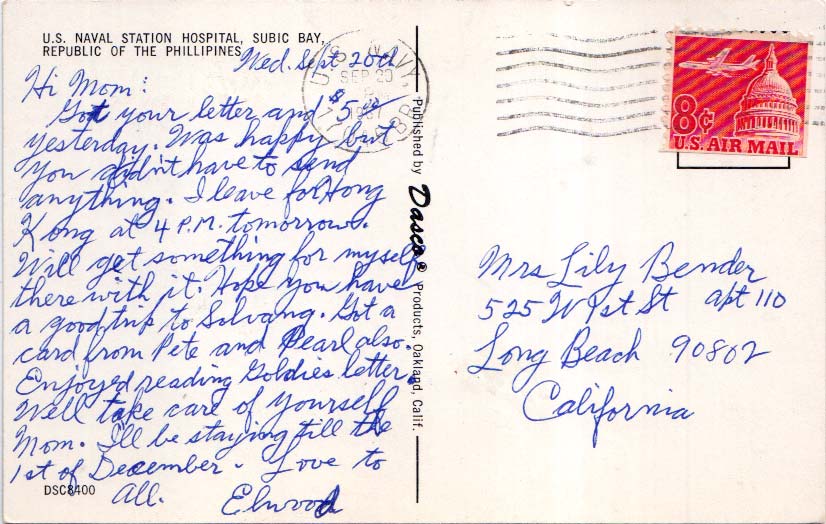 U.S. NAVAL STATION HOSPITAL, SUBIC BAY,
REPUBLIC OF THE PHILLIPINES
Wed. Sept 20th
Hi Mom:
Got your letter and $5.00
yesterday. Was happy but
you didn't have to send
anything. I leave for Hong
Kong at 4 P.M. tomorrow.
Will get something for myself
there with it. Hope you have
a good trip to Solvang. Got a
card from Pete and Pearl also.
Enjoyed reading Goldies letter.
Well take care of yourself
Mom. I'll be staying till the
1st of December. Love to
all. Elwood
DSC8400
Published by Dasco® Products, Oakland, Calif.
U.S. NAVY
SEP 20
8¢
U.S. AIR MAIL
Mrs Lily Bender
525 W 1st St apt 110
Long Beach 90802
California